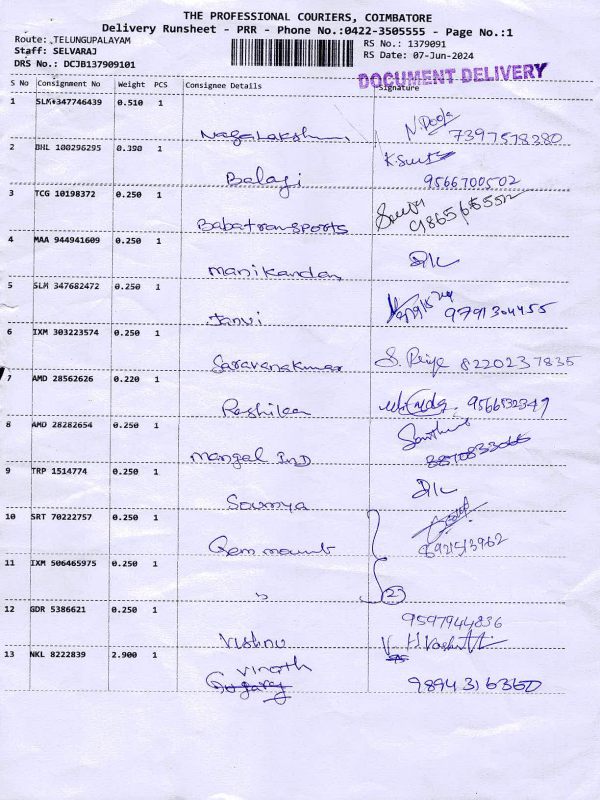 THE PROFESSIONAL COURIERS, COIMBATORE
Delivery Runsheet - PRR - Phone No.:0422-3505555 - Page No.:1
Route: TELUNGUPALAYAM
Staff: SELVARAJ
DRS No.: DCJB137909101
RS No.: 1379091
RS Date: 07-Jun-2024
DOCUMENT DELIVERY
S No Consignment No Weight PCS Consignee Details Signature
1 SLM 347746439 0.510 1
Nagalakshmi N. Pooja 7397578380
2 BHL 100296295 0.390 1
Balaji 9566700502
3 TCG 10198372 0.250 1
Babatransports
4 MAA 944941609 0.250 1
Manikandan
5 SLM 347682472 0.250 1
Janvi 9791304455
6 IXM 303223574 0.250 1
Saravanakumar S. Priya 8220237835
7 AMD 28562626 0.220 1
8 AMD 28282654 0.250 1
Mangal IND
9 TRP 1514774 0.250 1
Sowmya
10 SRT 70222757 0.250 1
Gem mount
11 IXM 506465975 0.250 1
" 2
12 GDR 5386621 0.250 1
Vishnu 9597944836
13 NKL 8222839 2.900 1
Vinoth
9894316360